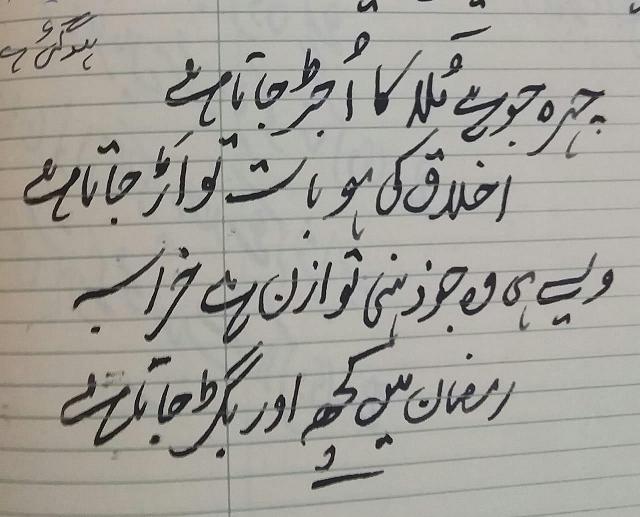 ہوگئی ہے
چہرہ جو ہے مُلّا کا اُجڑ جاتا ہے
اخلاق کی ہو بات تو اَڑ جاتا ہے
ویسے ہی وہ جو ذہنی توازن ہے خراب
رمضان میں کچھ اور بگڑ جاتا ہے